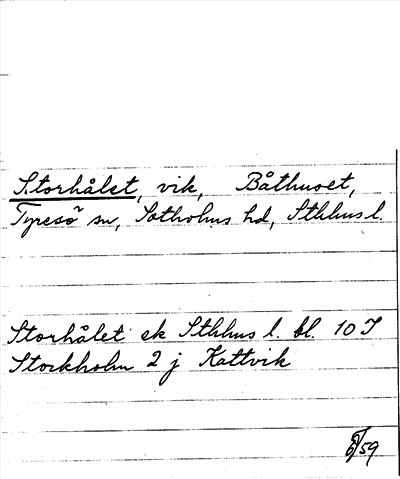 Storhålet, vik, Båthuset,
Tyresö sn, Sotholms hd, Sthlms l.
Storhålet ek Sthlms l. bl. 10 I
Stockholm 2 j Kattvik